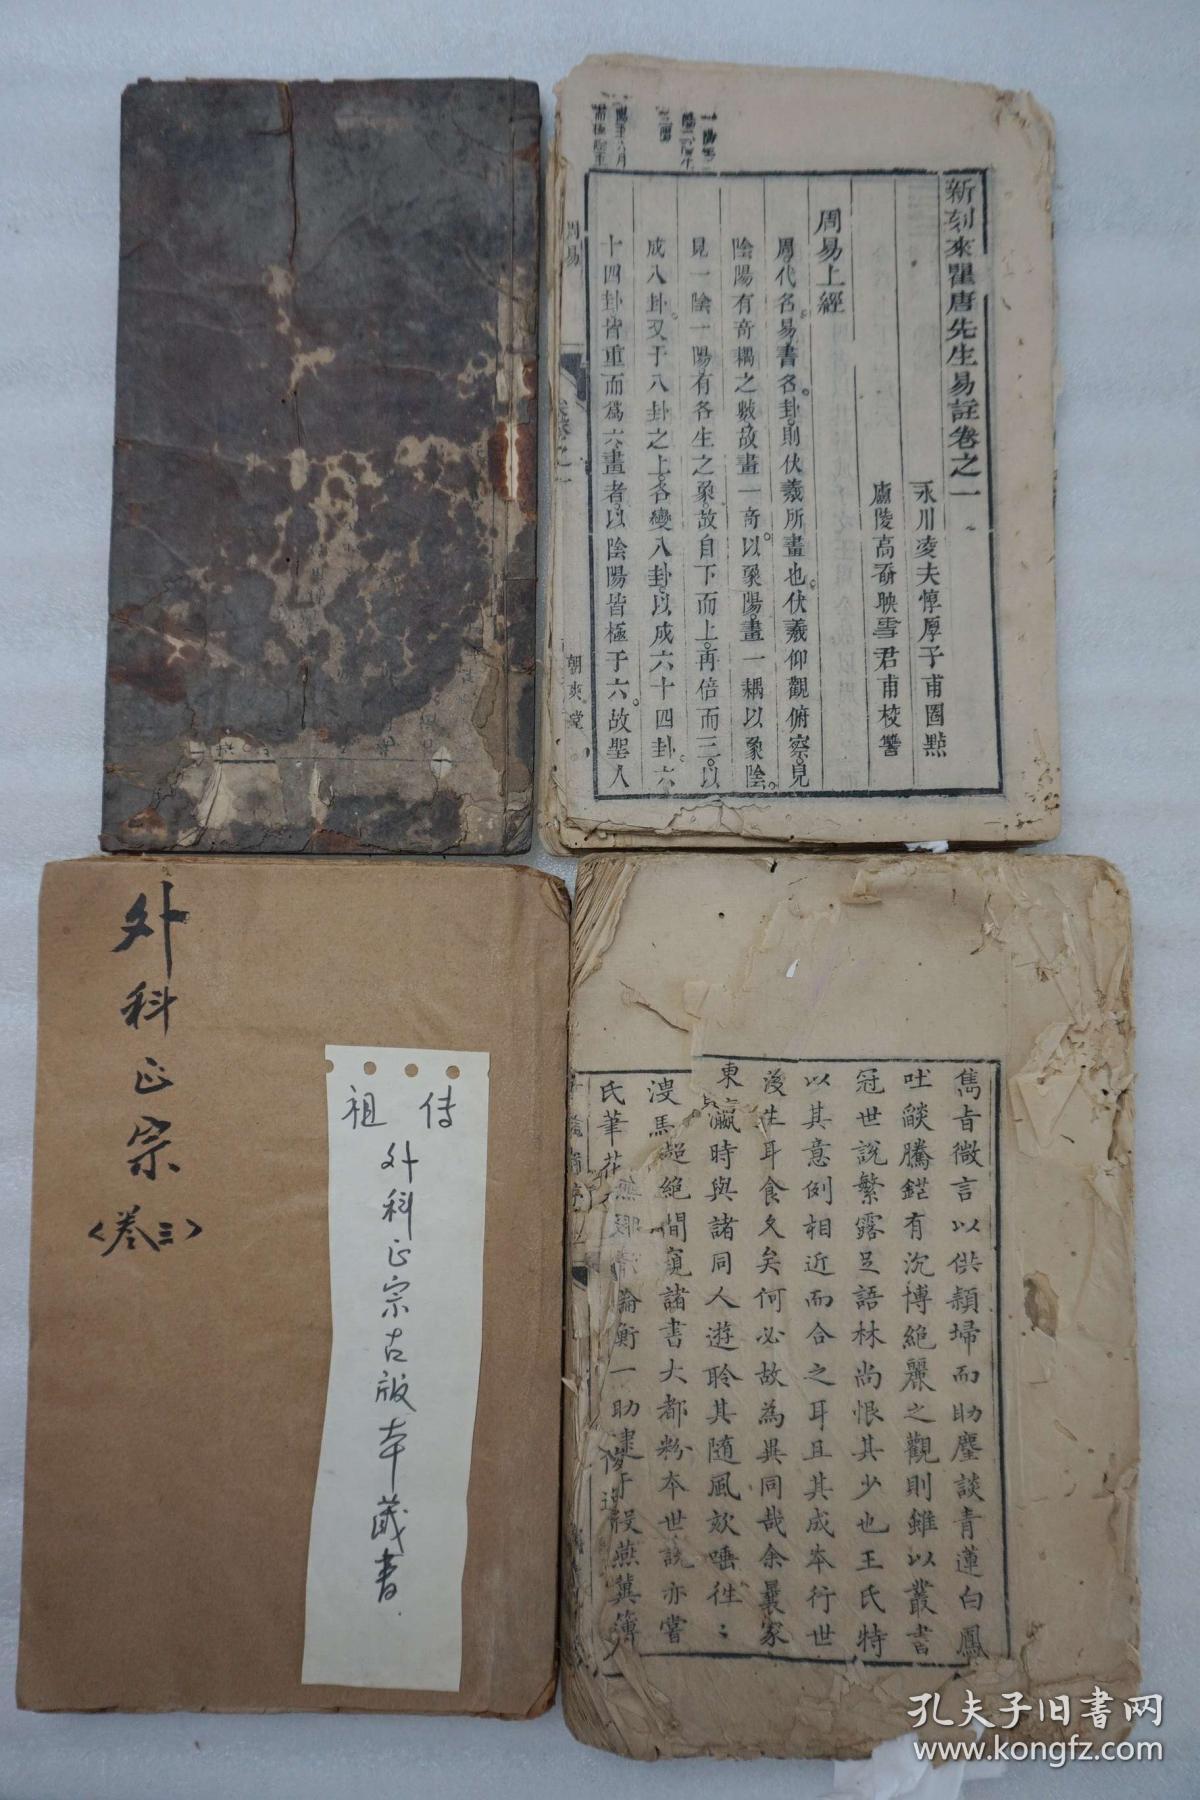 新刻來瞿唐先生易註卷之一
永川凌夫惇厚子甫圈點
廬陵高奣映雪君甫校讐
周易上經
周代名易書名卦則伏羲所畫也伏羲仰觀俯察見
陰陽有奇耦之數故畫一奇以象陽畫一耦以象陰
見一陰一陽有各生之象故自下而上再倍而三以
成八卦又于八卦之上各變八卦以成六十四卦六
十四卦皆重而爲六畫者以陰陽皆極于六故聖人
周易
朝爽堂
外科正宗
〈卷三〉
祖传
外科正宗古版本藏書
雋旨微言以供頴埽而助麈談青蓮白鳳
吐燄騰鎧有沉博絶麗之觀則雖以叢書
冠世說繁露足語林尚恨其少也王氏特
以其意例相近而合之耳且其成夲行世
後生耳食久矣何必故為異同哉余曩家
東瀛時與諸同人遊聆其隨風欬唾徃〻
馬超絶間窺諸書大都粉夲世說亦嘗
氏筆花
論衡一助
燕冀簿
孔夫子旧书网
www.kongfz.com